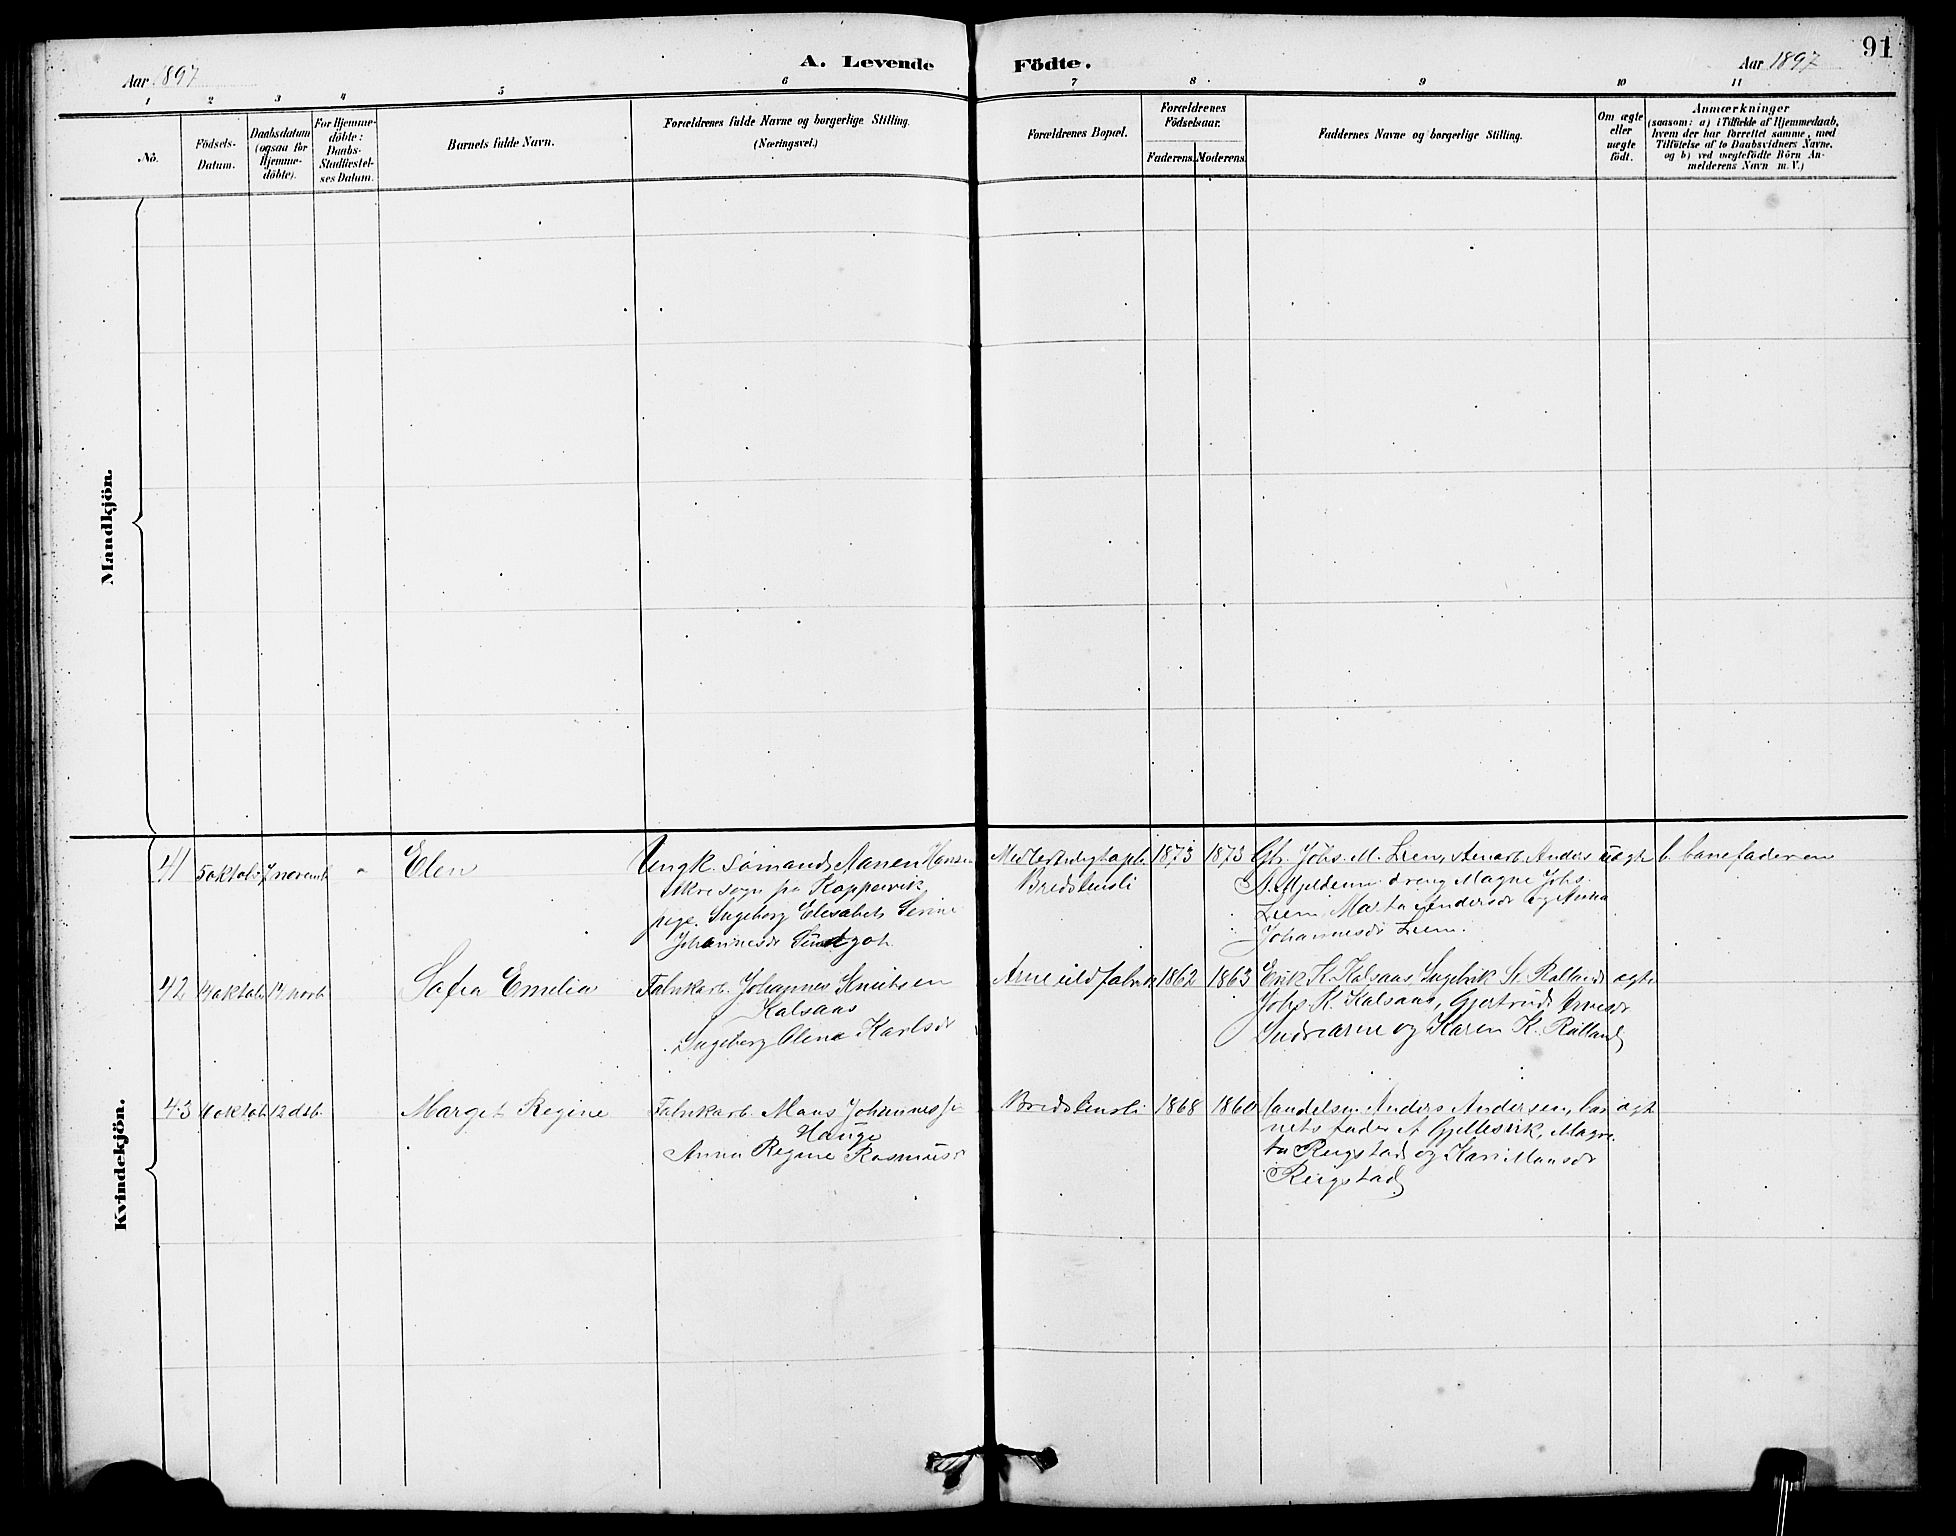 Aar 1897
A. Levende
Födte.
Aar 1897
91
1 2 3 4 5 6 7 8 9 10 11
No.
Födsels-
Datum.
Daabsdatum
(ogsaa for
Hjemme-
döbte).
For Hjemme-
döbte:
Daabs-
Stadfæstel-
ses Datum.
Barnets fulde Navn.
Forældrenes fulde Navne og borgerlige Stilling.
(Næringsvei.)
Forældrenes Bopæl.
Forældrenes
Födselsaar.
Faderens. Moderens.
Faddernes Navne og borgerlige Stilling.
Om ægte
eller
uægte
födt.
Anmærkninger
(saasom: a) i Tilfælde af Hjemmedaab,
hvem der har forrettet samme, med
Tilföielse af to Daabsvidners Navne,
og b) ved uægtefödte Börn An-
melderens Navn m. V.)
Mandkjön.
Kvindekjön.
41
5 oktob.
7 novemb
Elen
Ungk. Sømand Hansen
sogn pr Koppervik,
pige. Ingeborg Elisabet Serine
Johannesdr
Bredstensli
1873
1873
Gbr. Johs. M. Lien, Anders
dreng Magne Johs.
Lien, Marta Andersdr og Anna
Johannesdr Lien.
uægte
b. barnefaderen
42
14 novb
Sofia Emelia
Fabrikarb. Johannes Knutsen
Kalsaas
Ingeborg Olena Karlsdr
Arne uldfabrik
1862
1863
Erik K. Kalsaas, Ingebrik St. Rolland
Johs. K. Kalsaas, Gjertrud Arnesdr
Indrearne og Karen K. Rolland
ægte
43
4 oktob.
12 dsb.
Marget Regine
Fabrikarb. Mans Johannessen
Hauge
Anna Regine Rasmusdr
Bredstensli
1868
1860
Handelsm. Anders Andersen, bar
nets fader, A Gjellesvik, Magre-
ta Reigstad og Kari Mansdr
Reigstad
ægte